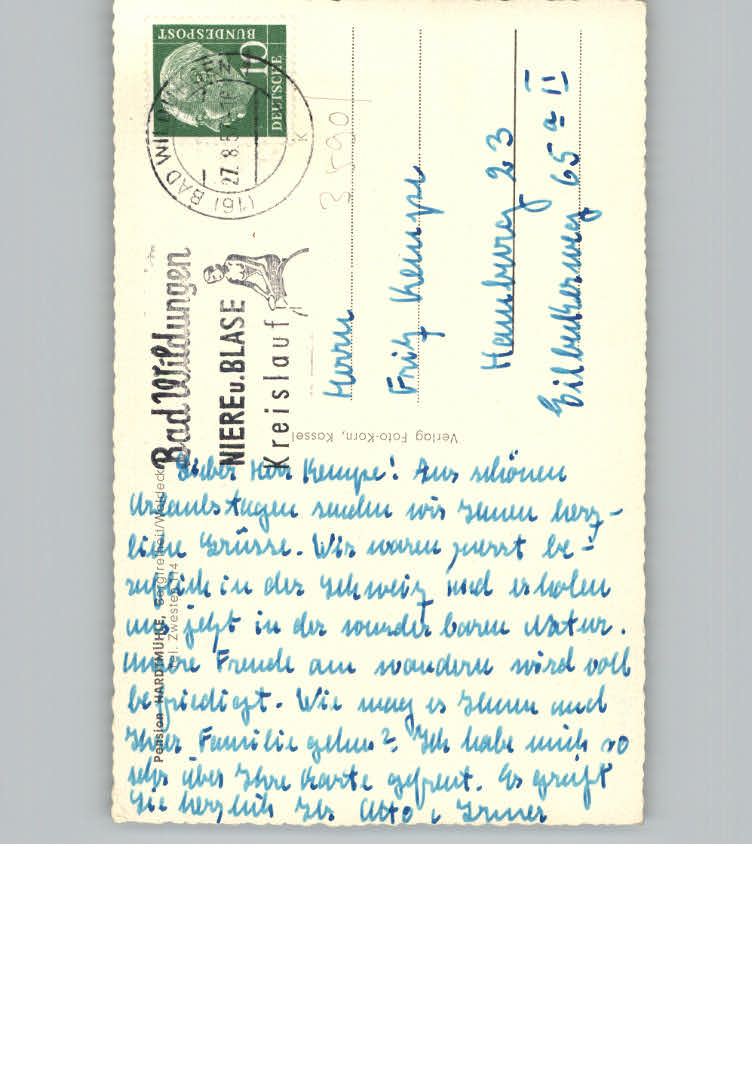 DEUTSCHE
BUNDESPOST
10
(16) BAD WILDUNGEN
27.8.57
K
Bad Wildungen
NIERE u. BLASE
Kreislauf
3590
Herrn
Fritz Kempe
Hamburg 23
Eilbekerweg 65 a II
Verlag Foto-Korn, Kassel
Pension HARDTMÜHLE, Bergfreiheit/Waldeck
Tel. Zwesten 114
Lieber Herr Kempe! Aus schönen
Urlaubstagen senden wir Ihnen herz-
liche Grüsse. Wir waren zuerst be-
ruflich in der Schweiz und erholen
uns jetzt in der wunderbaren Natur.
Unsere Freude am wandern wird voll
befriedigt. Wie mag es Ihnen und
Ihrer Familie gehen? Ich habe mich so
sehr über Ihre Karte gefreut. Es grüßt
Sie herzlich Ihr Otto